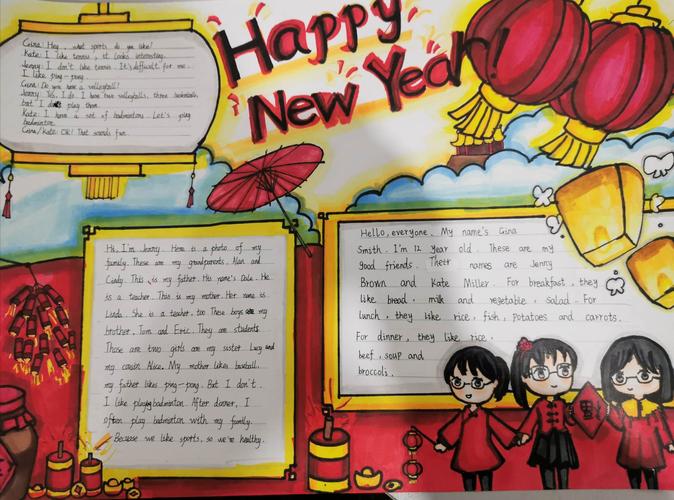 Happy
New Year!
Gina: Hey, what sports do you like?
Kate: I like tennis, it looks interesting.
Jenny: I don't like tennis. It's difficult for me.
I like ping-pong.
Gina: Do you have a volleyball?
Jenny: Yes, I do. I have two volleyballs, three
but I don't play them.
Kate: I have a set of badminton. Let's going
badminton.
Gina/Kate: OK! That sounds fun.
Hi, I'm Jenny. Here is a photo of my
family. These are my grandparents, Alan and
Cindy. This is my father. His name's Dale. He
is a teacher. This is my mother. Her name is
Linda. She is a teacher, too. These boys are my
brother, Tom and Eric. They are students.
Those are two girls are my sister Lucy and
my cousin Alice. My mother likes baseball,
my father likes ping-pong. But I don't.
I like play badminton. After dinner, I
often play badminton with my family.
Because we like sports, so we're healthy.
Hello, everyone. My name's Gina
Smith. I'm 12 year old. These are my
good friends. Their names are Jenny
Brown and Kate Miller. For breakfast, they
like bread, milk and vegetable, salad. For
lunch, they like rice, fish, potatoes and carrots.
For dinner, they like rice,
beef, soup and
broccoli.
福